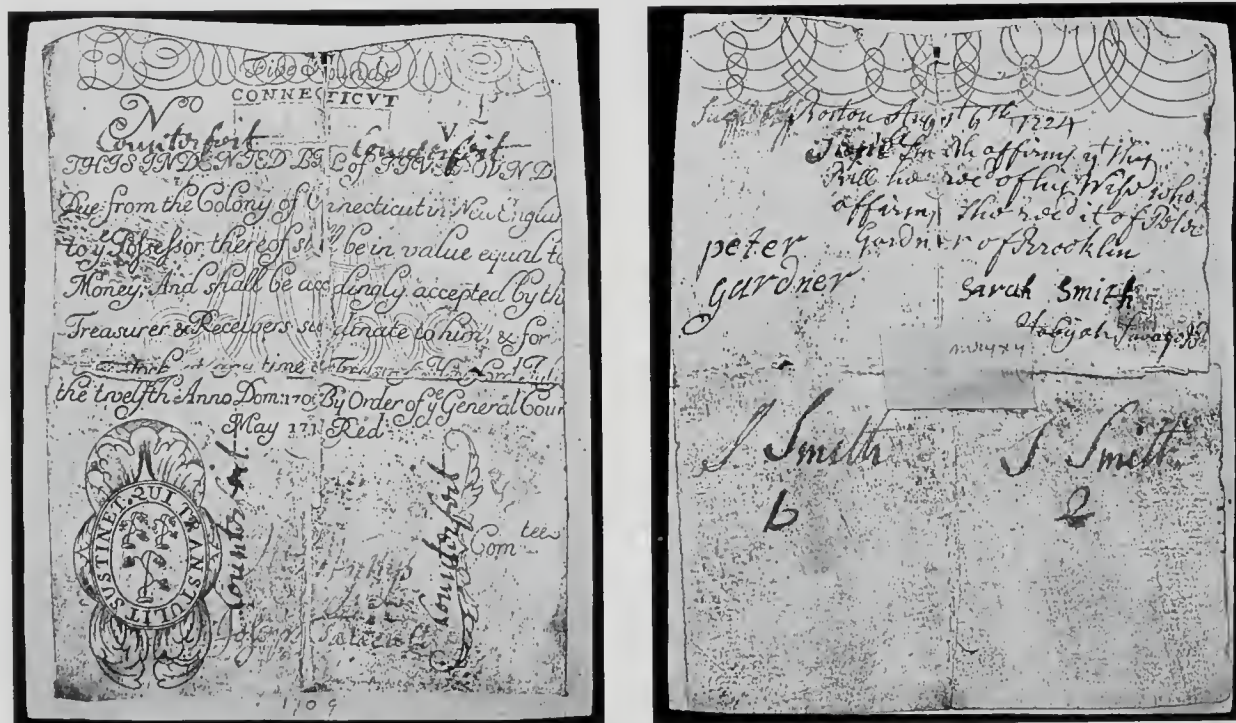 Five Pounds
CONNECTICVT
No
Counterfeit Counterfeit
THIS INDENTED BILL of FIVE POVND
Due from the Colony of Connecticut in New Englan
to ye Possessor thereof shall be in value equal to
Money; And shall be accordingly accepted by the
Treasurer & Receivers subordinate to him, & for
Stock at any time
the twelfth Anno Dom: 1709 By Order of ye General Cour
May 171 Red
Counterfeit
Counterfeit
Com tee
SUSTINET QUI TRANSTULIT
1709
Boston August 6th 1724
Smith affirms yt this
Bill he recd of his Wife who
affirms she recd it of Peter
Gardner of Brooklin
peter
gardner
Sarah Smith
J Smith J Smith
b 2